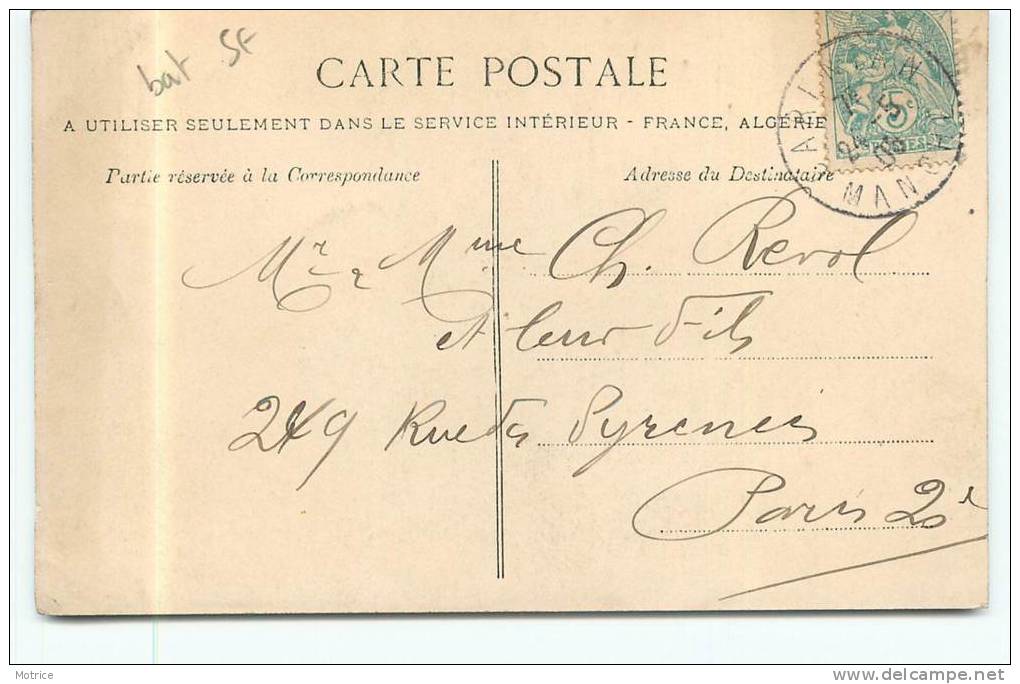 bat 5F
CARTE POSTALE
A UTILISER SEULEMENT DANS LE SERVICE INTÉRIEUR - FRANCE, ALGÉRIE
Partie réservée à la Correspondance
Adresse du Destinataire
5c
MANCHE
Mr & Mme Ch. Revol
et leur fils
249 Rue des Pyrenées
Paris 20e
Motrice
delcampe.net